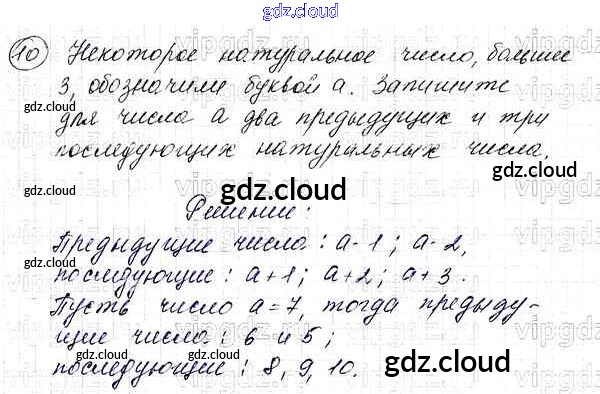 gdz.cloud
10 Некоторое натуральное число, большее
3, обозначили буквой а. Запишите
gdz.cloud gdz.cloud
для числа а два предыдущих и три
последующих натуральных числа.
gdz.cloud
gdz.cloud gdz.cloud
Решение:
Предыдущие числа: а-1; а-2,
последующие: а+1; а+2; а+3.
gdz.cloud gdz.cloud
Пусть число а=7, тогда предыду-
щие числа: 6 и 5;
gdz.cloud gdz.cloud
последующие: 8, 9, 10.
gdz.cloud